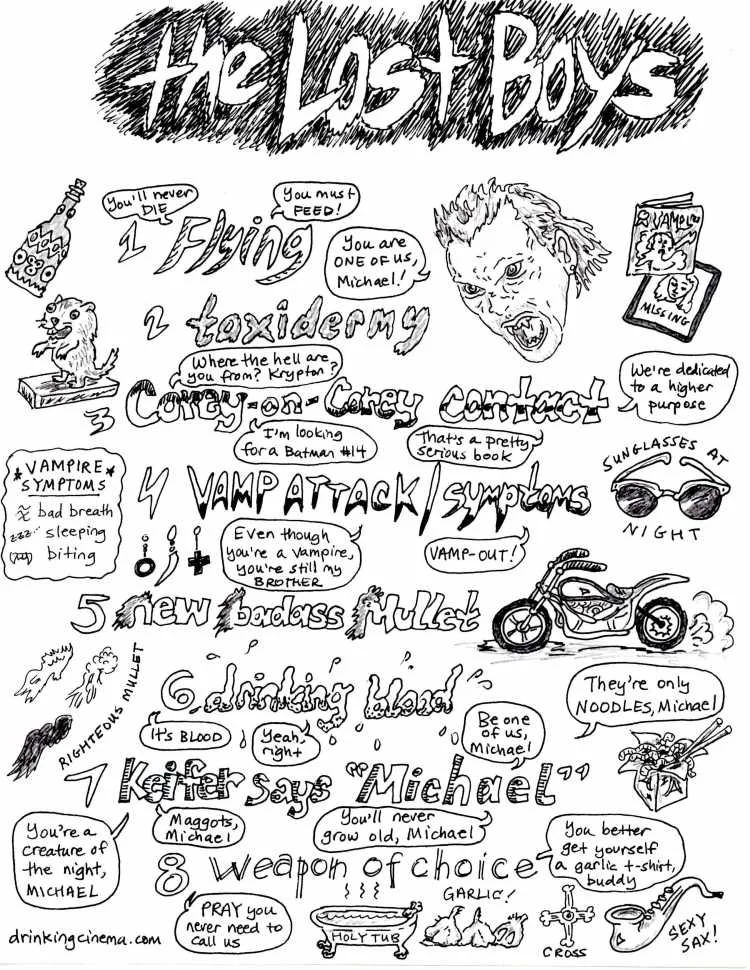 the Lost Boys
You'll never
DIE
You must
FEED!
1 Flying
You are
ONE OF US,
Michael!
VAMP
MISSING
2 taxidermy
Where the hell are
you from? Krypton?
We're dedicated
to a higher
purpose
3 Corey-on-Corey contact
I'm looking
for a Batman #14
That's a pretty
serious book
SUNGLASSES AT
NIGHT
VAMPIRE
SYMPTOMS
bad breath
zzz sleeping
biting
4 VAMP ATTACK/symptoms
Even though
you're a vampire,
you're still my
BROTHER
VAMP-OUT!
5 new badass Mullet
RIGHTEOUS MULLET
6 drinking blood
They're only
NOODLES, Michael
It's BLOOD
Yeah
right
Be one
of us,
Michael
7 Keifer says "Michael"
Maggots,
Michael
You'll never
grow old, Michael
You're a
creature of
the night,
MICHAEL
You better
get yourself
a garlic t-shirt,
buddy
8 Weapon of choice
PRAY you
never need to
call us
HOLY TUB
GARLIC!
CROSS
SEXY
SAX!
drinkingcinema.com